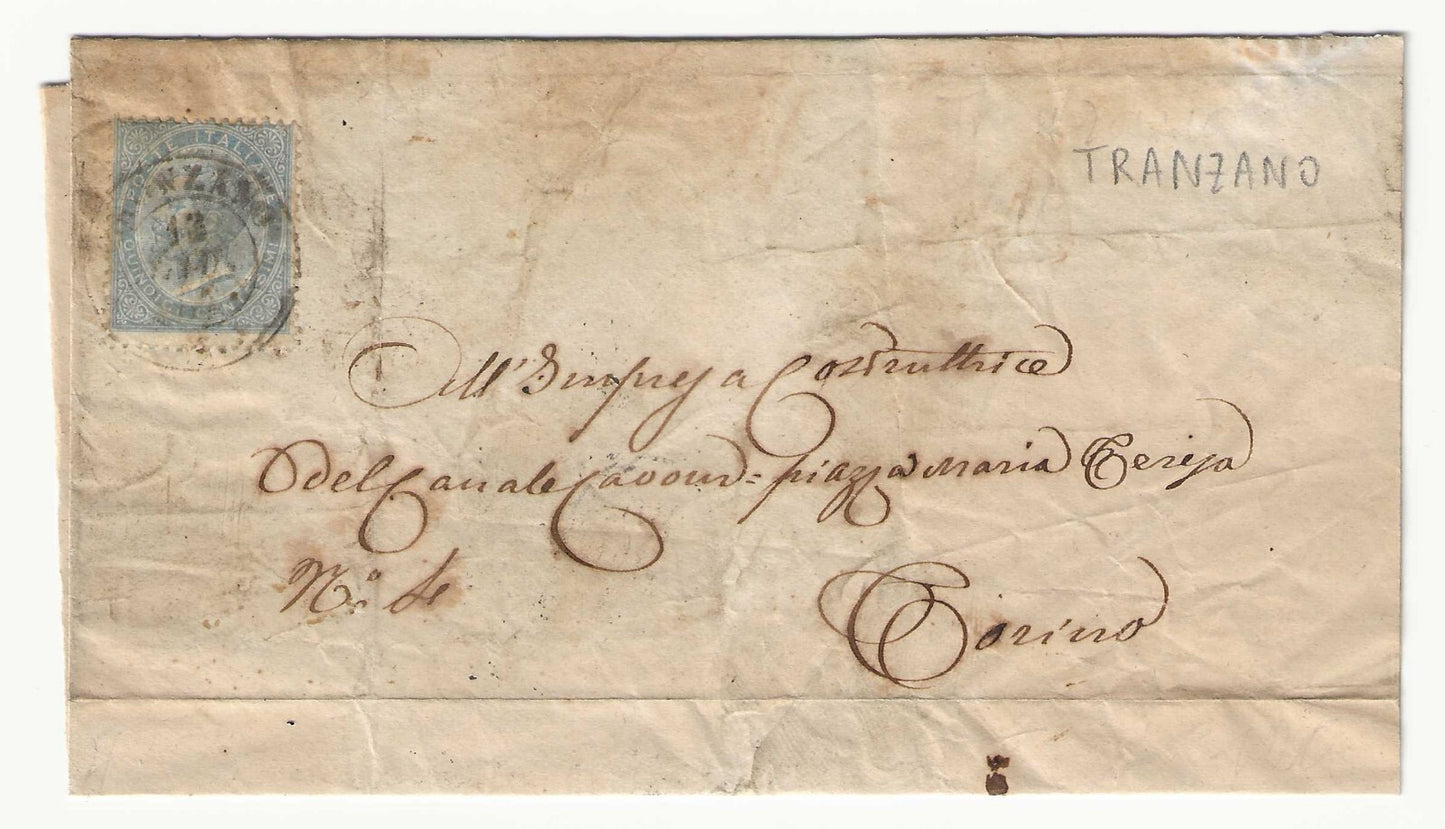 POSTE ITALIANE
NZANO
12
QUINDICI CENTESIMI
TRANZANO
All'Impresa Costruttrice
del Canale Cavour = piazza Maria Teresa
N.o 4
Torino